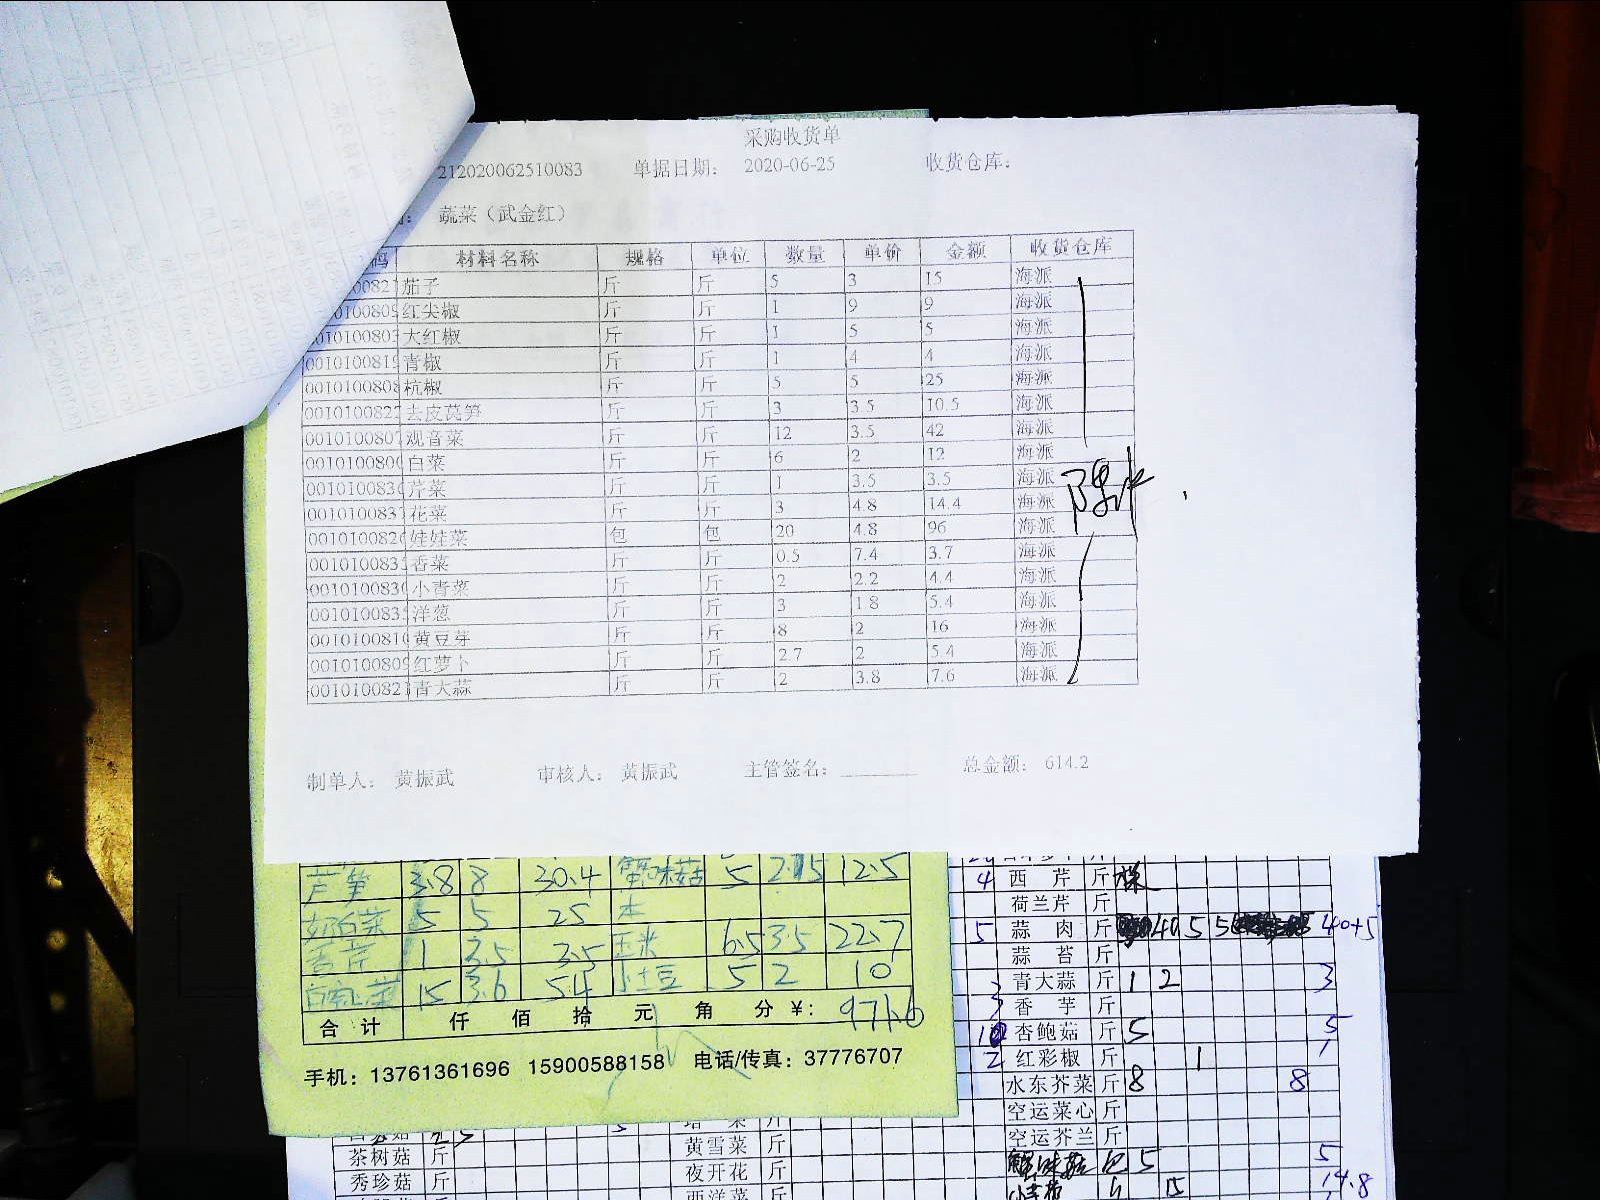 采购收货单
212020062510083 单据日期： 2020-06-25 收货仓库：
蔬菜（武金红）
码 材料名称 规格 单位 数量 单价 金额 收货仓库
0082 茄子 斤 斤 5 3 15 海派
010100809 红尖椒 斤 斤 1 9 9 海派
010100803 大红椒 斤 斤 1 5 5 海派
001010081 青椒 斤 斤 1 4 4 海派
0010100808 杭椒 斤 斤 5 5 25 海派
0010100822 去皮莴笋 斤 斤 3 3.5 10.5 海派
0010100807 观音菜 斤 斤 12 3.5 42 海派
001010080 白菜 斤 斤 6 2 12 海派
001010083 芹菜 斤 斤 1 3.5 3.5 海派
001010083 花菜 斤 斤 3 4.8 14.4 海派
001010082 娃娃菜 包 包 20 4.8 96 海派
001010083 香菜 斤 斤 0.5 7.4 3.7 海派
001010083 小青菜 斤 斤 2 2.2 4.4 海派
001010083 洋葱 斤 斤 3 1.8 5.4 海派
001010081 黄豆芽 斤 斤 8 2 16 海派
0010100809 红萝卜 斤 斤 2.7 2 5.4 海派
001010082 青大蒜 斤 斤 2 3.8 7.6 海派
制单人： 黄振武 审核人： 黄振武 主管签名： 总金额： 614.2
芦笋 3.8 8 30.4 蟹味菇 5 2.5 12.5
奶白菜 5 5 25 木
香芹 1 3.5 3.5 玉米 6.5 3.5 22.7
15 3.6 54 小土豆 5 2 10
合计 仟 佰 拾 元 角 分 ¥: 971.6
手机：13761361696 15900588158 电话/传真：37776707
4 西芹 斤
荷兰芹 斤
5 蒜肉 斤 40 5 5 40+5
蒜苔 斤
3 青大蒜 斤 1 2 3
香芋 斤
10 杏鲍菇 斤 5 5
2 红彩椒 斤 1 1
水东芥菜 斤 8 8
空运菜心 斤
空运芥兰 斤
蟹味菇 包 5 5
15 14.8
茶树菇 斤 黄雪菜 斤
秀珍菇 斤 夜开花 斤
西洋菜 斤